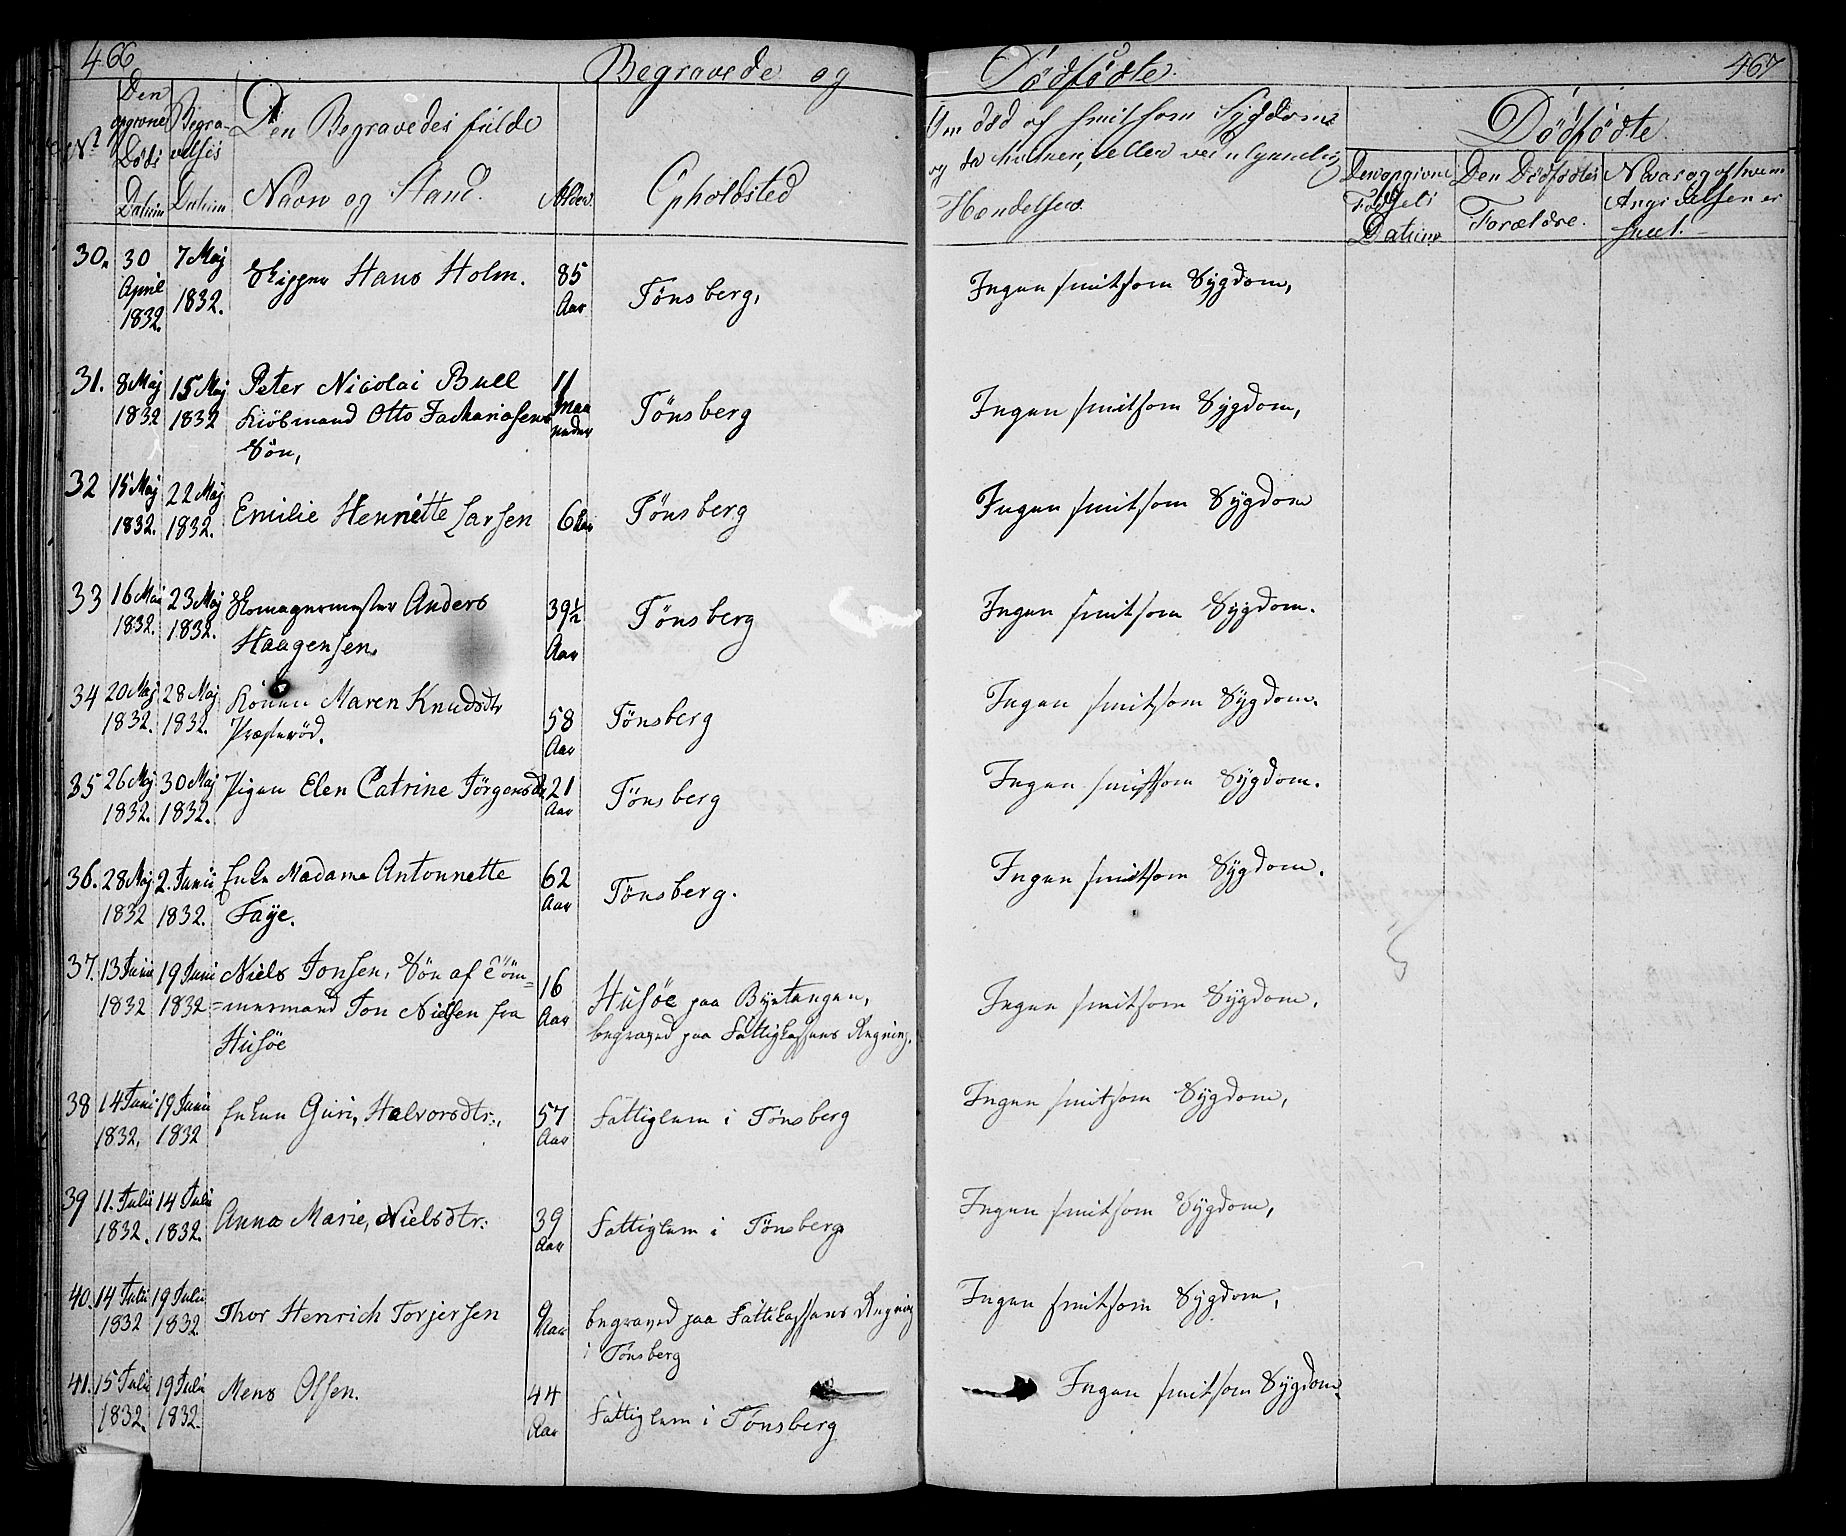 466
Begravede og
Dødfødte.
467
No
Den opgivne Døds Datum
Begravelses Datum
Den Begravedes fulde
Navn og Stand.
Alder.
Opholdsted
Om død af smitsom Sygdom
og da hvilken, eller ved ulykkelig
Hændelse.
Dødfødte
Den opgivne Fødsels Datum
Den Dødfødtes Forældre.
Naar og af hvem Angivelsen er skeet.
30. 30 April 1832. 7 Maj 1832. Skipper Hans Holm. 85 Aar Tønsberg, Ingen smitsom Sygdom,
31. 8 Maj 1832 15 Maj 1832 Peter Nicolai Bull
Kiöbmand Otto Zachariasens
Søn, 11 Maaneder Tønsberg Ingen smitsom Sygdom,
32 15 Maj 1832. 22 Maj 1832. Emilie Henriette Larsen 6 Aar Tønsberg Ingen smitsom Sygdom
33 16 Mai 1832. 23 Maj 1832. Skomagermester Anders
Haagensen. 39½ Aar Tønsberg Ingen smitsom Sygdom.
34 20 Maj 1832. 28 Maj 1832. Konen Maren Knudsdtr
Præsterød. 58 Aar Tønsberg Ingen smitsom Sygdom.
35 26 Maj 1832. 30 Maj 1832. Pigen Elen Catrine Jörgensdtr 21 Aar Tønsberg Ingen smitsom Sygdom.
36. 28 Maj 1832 2. Junii 1832. Enke Madame Antonnette
Faye. 62 Aar Tønsberg. Ingen smitsom Sygdom.
37. 13 Junii 1832 19 Juni 1832 Niels Jonsen, Søn af Töm-
=mermand Jon Nielsen fra
Husöe 16 Aar Husöe paa Byetangen,
begraved paa Fattigkassens Regning. Ingen smitsom Sygdom.
38 14 Juni 1832, 19 Junii 1832 Enken Guri, Halvorsdtr:, 57 Aar Fattiglem i Tønsberg Ingen smitsom Sygdom,
39 11. Julii 1832. 14 Julii 1832. Anna Marie, Nielsdtr: 39 Aar Fattiglem i Tønsberg Ingen smitsom Sygdom,
40. 14 Julii 1832 19 Julii 1832 Thor Henrich Torjersen 9 Aar begraved paa Fattikassens Regning
i Tønsberg Ingen smitsom Sygdom,
41. 15 Julii 1832. 19 Juli 1832. Mens Olsen. 44 Aar Fattiglem i Tønsberg Ingen smitsom Sygdom.